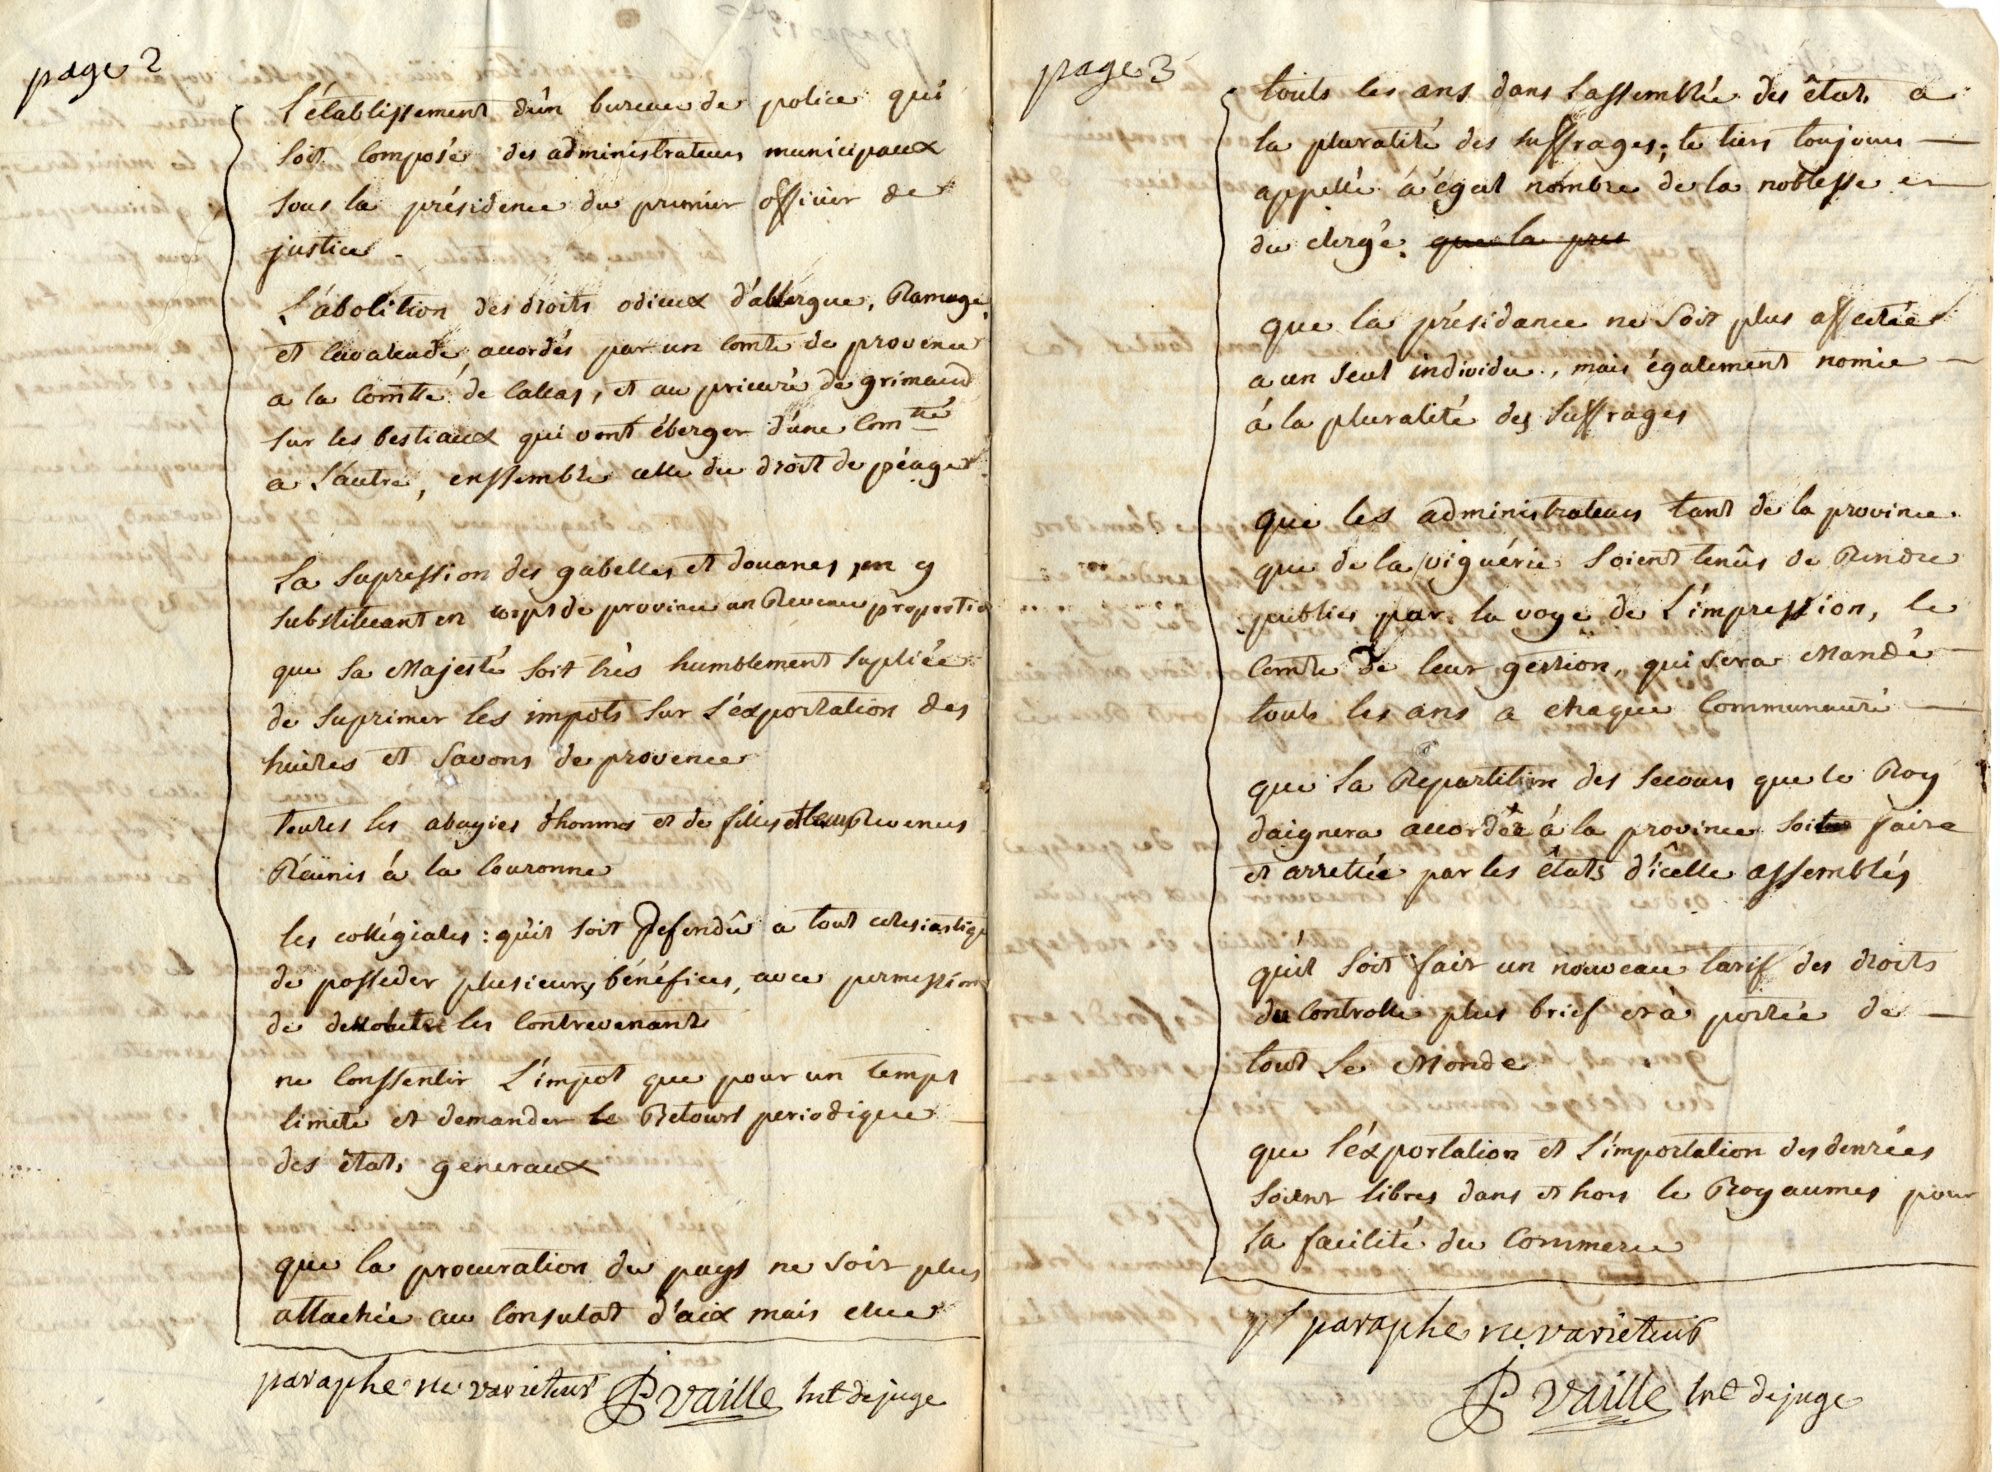 page 2
L'établissement d'un bureau de police qui
soit composé des administrateurs municipaux
sous la présidence du premier officier de
justice.
L'abolition des droits odieux d'albergue, Ramage,
et cavalcade accordés par un comte de provence
a la comtté de Callas, et au prieuré de grimaud
sur les bestiaux qui vont éberger d'une comtté
a l'autre, enssemble celle du droit de péage.
la supression des gabelles et douanes, en y
substituant en corps de province un Revenu proportio
que sa Majesté soit très humblement supliée
de suprimer les impots sur l'éxportation des
huiles et savons de provence
toutes les abayies d'hommes et de filles et leurs Revenus
Réünis á la couronne
les collégiales : qu'il soit Defendû a tout eclesiastiqu
de posseder plusieurs bénéfices, avec permission
de les contrevenants
ne conssentir L'impot que pour un temps
limité et demander le Retourt periodique
des états generaux
que la procuration du pays ne soit plus
attachée au consulat d'aix mais elue
paraphé ne varietur Vaille lnt de juge
page 3
touts les ans dans l'assemblée des états a
la pluralité des suffrages; le tiers toujours
appellé á égal nombre de la noblesse et
du clergé. que la pres
que la présidance ne soit plus affectée
a un seul individu, mais également nomée
á la pluralité des suffrages
que les administrateurs tant de la province
que de la viguérie soient tenûs de Rendre
publics par la voye de L'impression, le
comte de leur gestion, qui sera Mandé
touts les ans a chaque Communauté
que la Repartition des secours que le Roy
daignera accorder á la province soit faire
et arrettée par les êtats d'icelle assemblés
qu'il soit fait un nouveau tarif des droits
du controlle plus brief et à portée de
tout le Monde
que l'éxportation et l'importation des denrées
soient libres dans et hors le Royaumes pour
la facilité du Commerce
paraphé ne varietur
Vaille lnt de juge